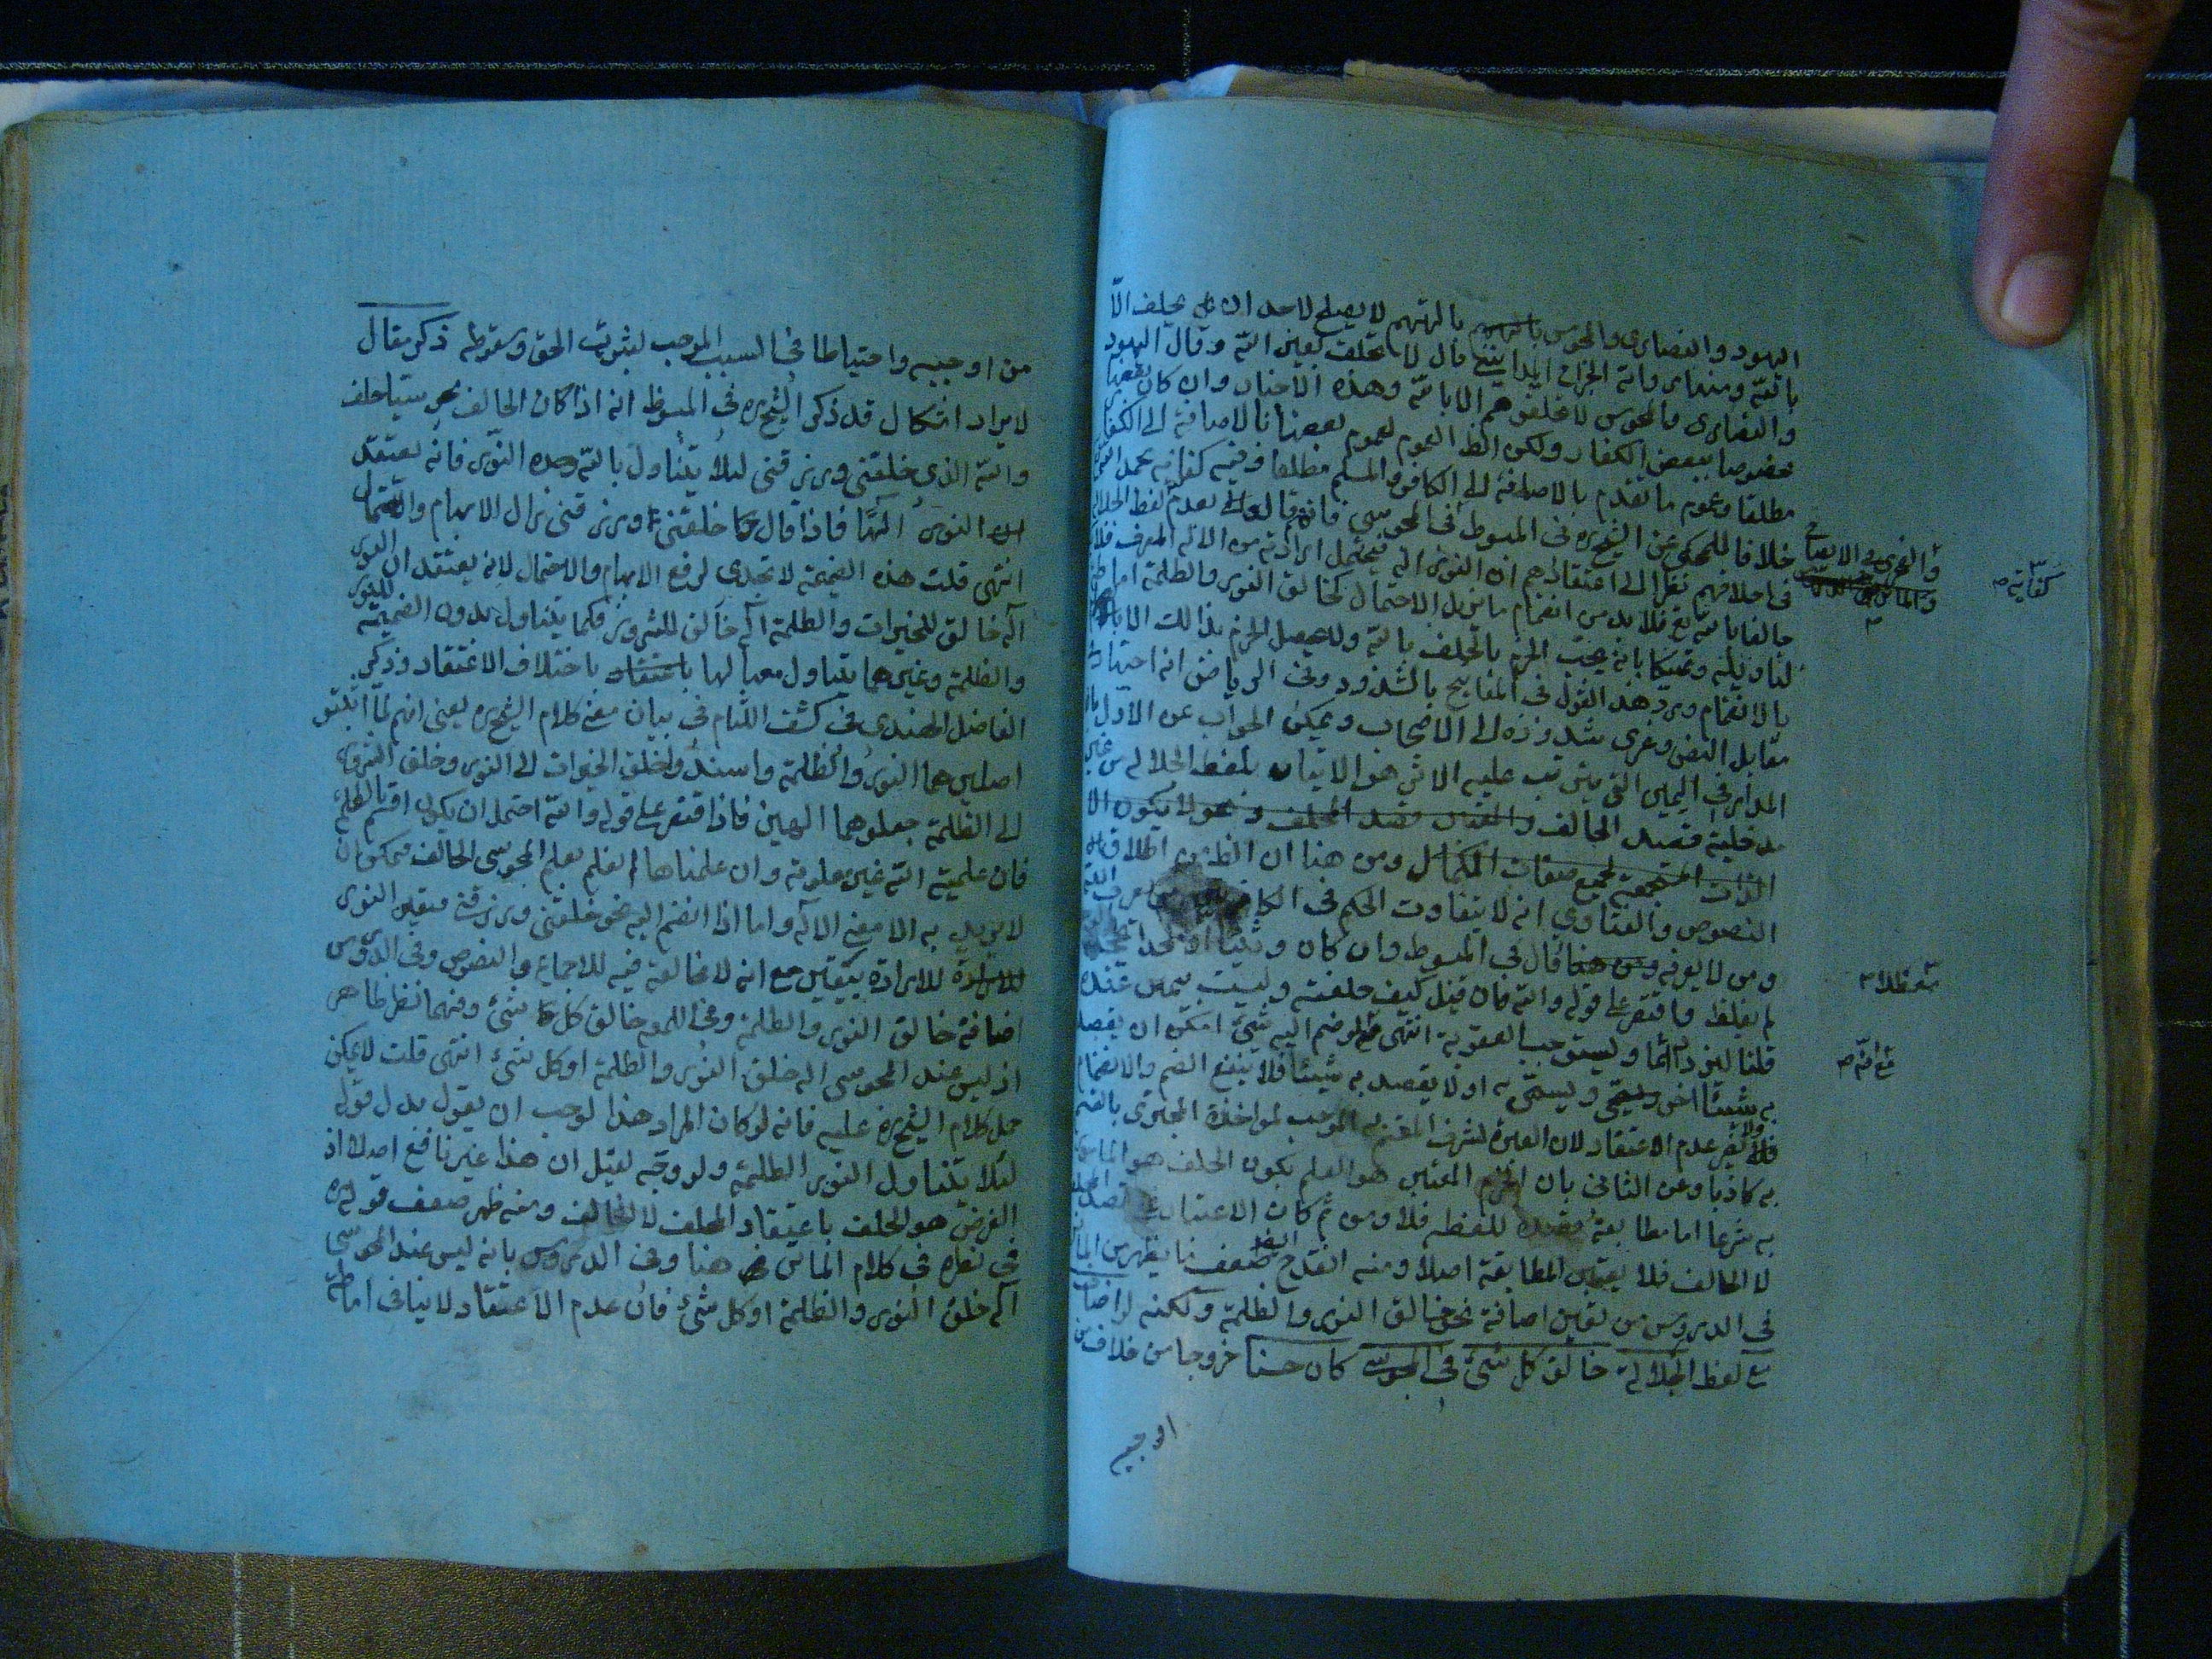 اليهود والنصارى والمجوس بالهتهم لا يصلح لاحد ان يحلف الّا
بالله ومنها رواية الجراح المدايني قال لا يحلف بغير الله وقال اليهود
والنصارى والمجوس لا تحلفوهم الا بالله وهذه الاخبار وان كان بعضها
مخصوصا ببعض الكفار ولكن الظ العموم لعموم بعضها بالاضافة الى الكفار
مطلقا وعموم ما تقدم بالاضافة الى الكافر والمسلم مطلقا وفيه كفاية
خلافا للمحكى عن الشيخ ره في المبسوط في المجوسي فانه قال بعدم لفظ الجلالة
في احلافهم نظرا الى اعتقادهم ان النور اله فيحتمل ارادته من الاله المعرف فلا
حالفا بالله تع فلابد من انضمام ما يزيل الاحتمال كخالق النور والظلمة اماطة
لتاويله وتمسكا بانه يجب الجزم بالحلف بالله ولا يحصل الجزم بذالك الا
بالانضمام وردّ هذ القول في المفاتيح بالشذوذ وفي الرياض انه اجتهاد
مقابل النص وعزى شذوذه الى الاصحاب ويمكن الجواب عن الاول بان
المدار في اليمين التي يترتب عليه الاثر هو الاتيان بلفظ الجلالة من غير
مدخلية قصد الحالف
الذات المستجمعة لجميع صفات الكمال ومن هنا ان الظ من اطلاق
النصوص والفتاوي انه لا يتفاوت الحكم في الكافر
ومن لا يعرفه قال في المبسوط وان كان وثنيا
لم يغلظ واقتصر على قوله والله فان قيل كيف حلفته وليست بيمين عنده
قلنا ليزداد اثما ويستوجب العقوبة انتهى فلو ضم اليه شئ امكن ان يقصد
به شيئا اخر ويسمى به او لا يقصد به شيئا فلا ينفع الضم والانضمام
فلا يضر عدم الاعتقاد لان العبرة لشرف المقسم به الموجب لمواخذة المجترى بالقسم
به كاذبا وعن الثاني بان الجزم المعتبر هو العلم بكون الحلف هو المامور
به شرعا اما مطابقة قصده للفظه فلا ومن ثم كان الاعتبار
لا الحالف فلا يعتبر المطابقة اصلا ومنه انقدح ضعف ما يظهر من
في الدروس من تعين اضافة نحو خالق النور والظلمة ولكنه لو اضاف
مع لفظ الجلالة خالق كل شئ في المجوس كان حسنا خروجا من خلاف من
اوجبه
من اوجبه واحتياطا في السبب الموجب لثبوت الحق وسقوطه ذكر مقال
لايراد اشكال قد ذكر الشيخ ره في المبسوط انه اذا كان الحالف مجوسيّا حلف
والله الذي خلقني ورزقني لئلا يتناول بالله وحده النور فانه يعتقد
النور الهًا فاذا قال خلقني ورزقني زال الابهام والاحتمال
انتهى قلت هذه الضميمة لا تجدى لرفع الابهام والاحتمال لانه يعتقد ان النور
اله خالق للخيرات والظلمة اله خالق للشرور فكما يتناول بدون الضميمة للنور
والظلمة وغيرهما يتناول معها لها باختلاف الاعتقاد وذكر
الفاضل الهندى في كشف اللثام في بيان معنى كلام الشيخ ره يعنى انهم لمّا اثبتو
اصلين هما النور والظلمة واسندوا خلق الخيرات الى النور وخلق الشرور
الى الظلمة جعلوهما الهين فاذا اقتصر على قوله والله احتمل ان يكون اقسم بالظلمة
فان علمية الله غير معلومة وان علمناها لم نعلم بعلم المجوسى الحالف فيمكن ان
لا يريد به الا معنى الاله واما اذا انضم اليه نحو خلقنى ورزقنى فتعين النور
للارادة بيقين مع انه لا مخالفة فيه للاجماع والنصوص وفي الدروس
اضافة خالق النور والظلمة وفي اللمعه خالق كل شئ وفيهما نظر ظاهر
اذ ليس عند المجوسى اله خلق النور والظلمة او كل شئ انتهى قلت لا يمكن
حمل كلام الشيخ ره عليه فانه لو كان المراد هذا لوجب ان يقول بدل قوله
لئلا يتناول النور الظلمة ولو وجّه لقيل ان هذا غير نافع اصلا اذ
الغرض هو الحلف باعتقاد المحلف لا الحالف ومنه ظهر ضعف قوله ره
في نظره في كلام الماتن هنا وفي الدروس بانه ليس عند المجوسى
اله خلق النور والظلمة او كل شئ فان عدم الاعتقاد لا ينافى اماطة